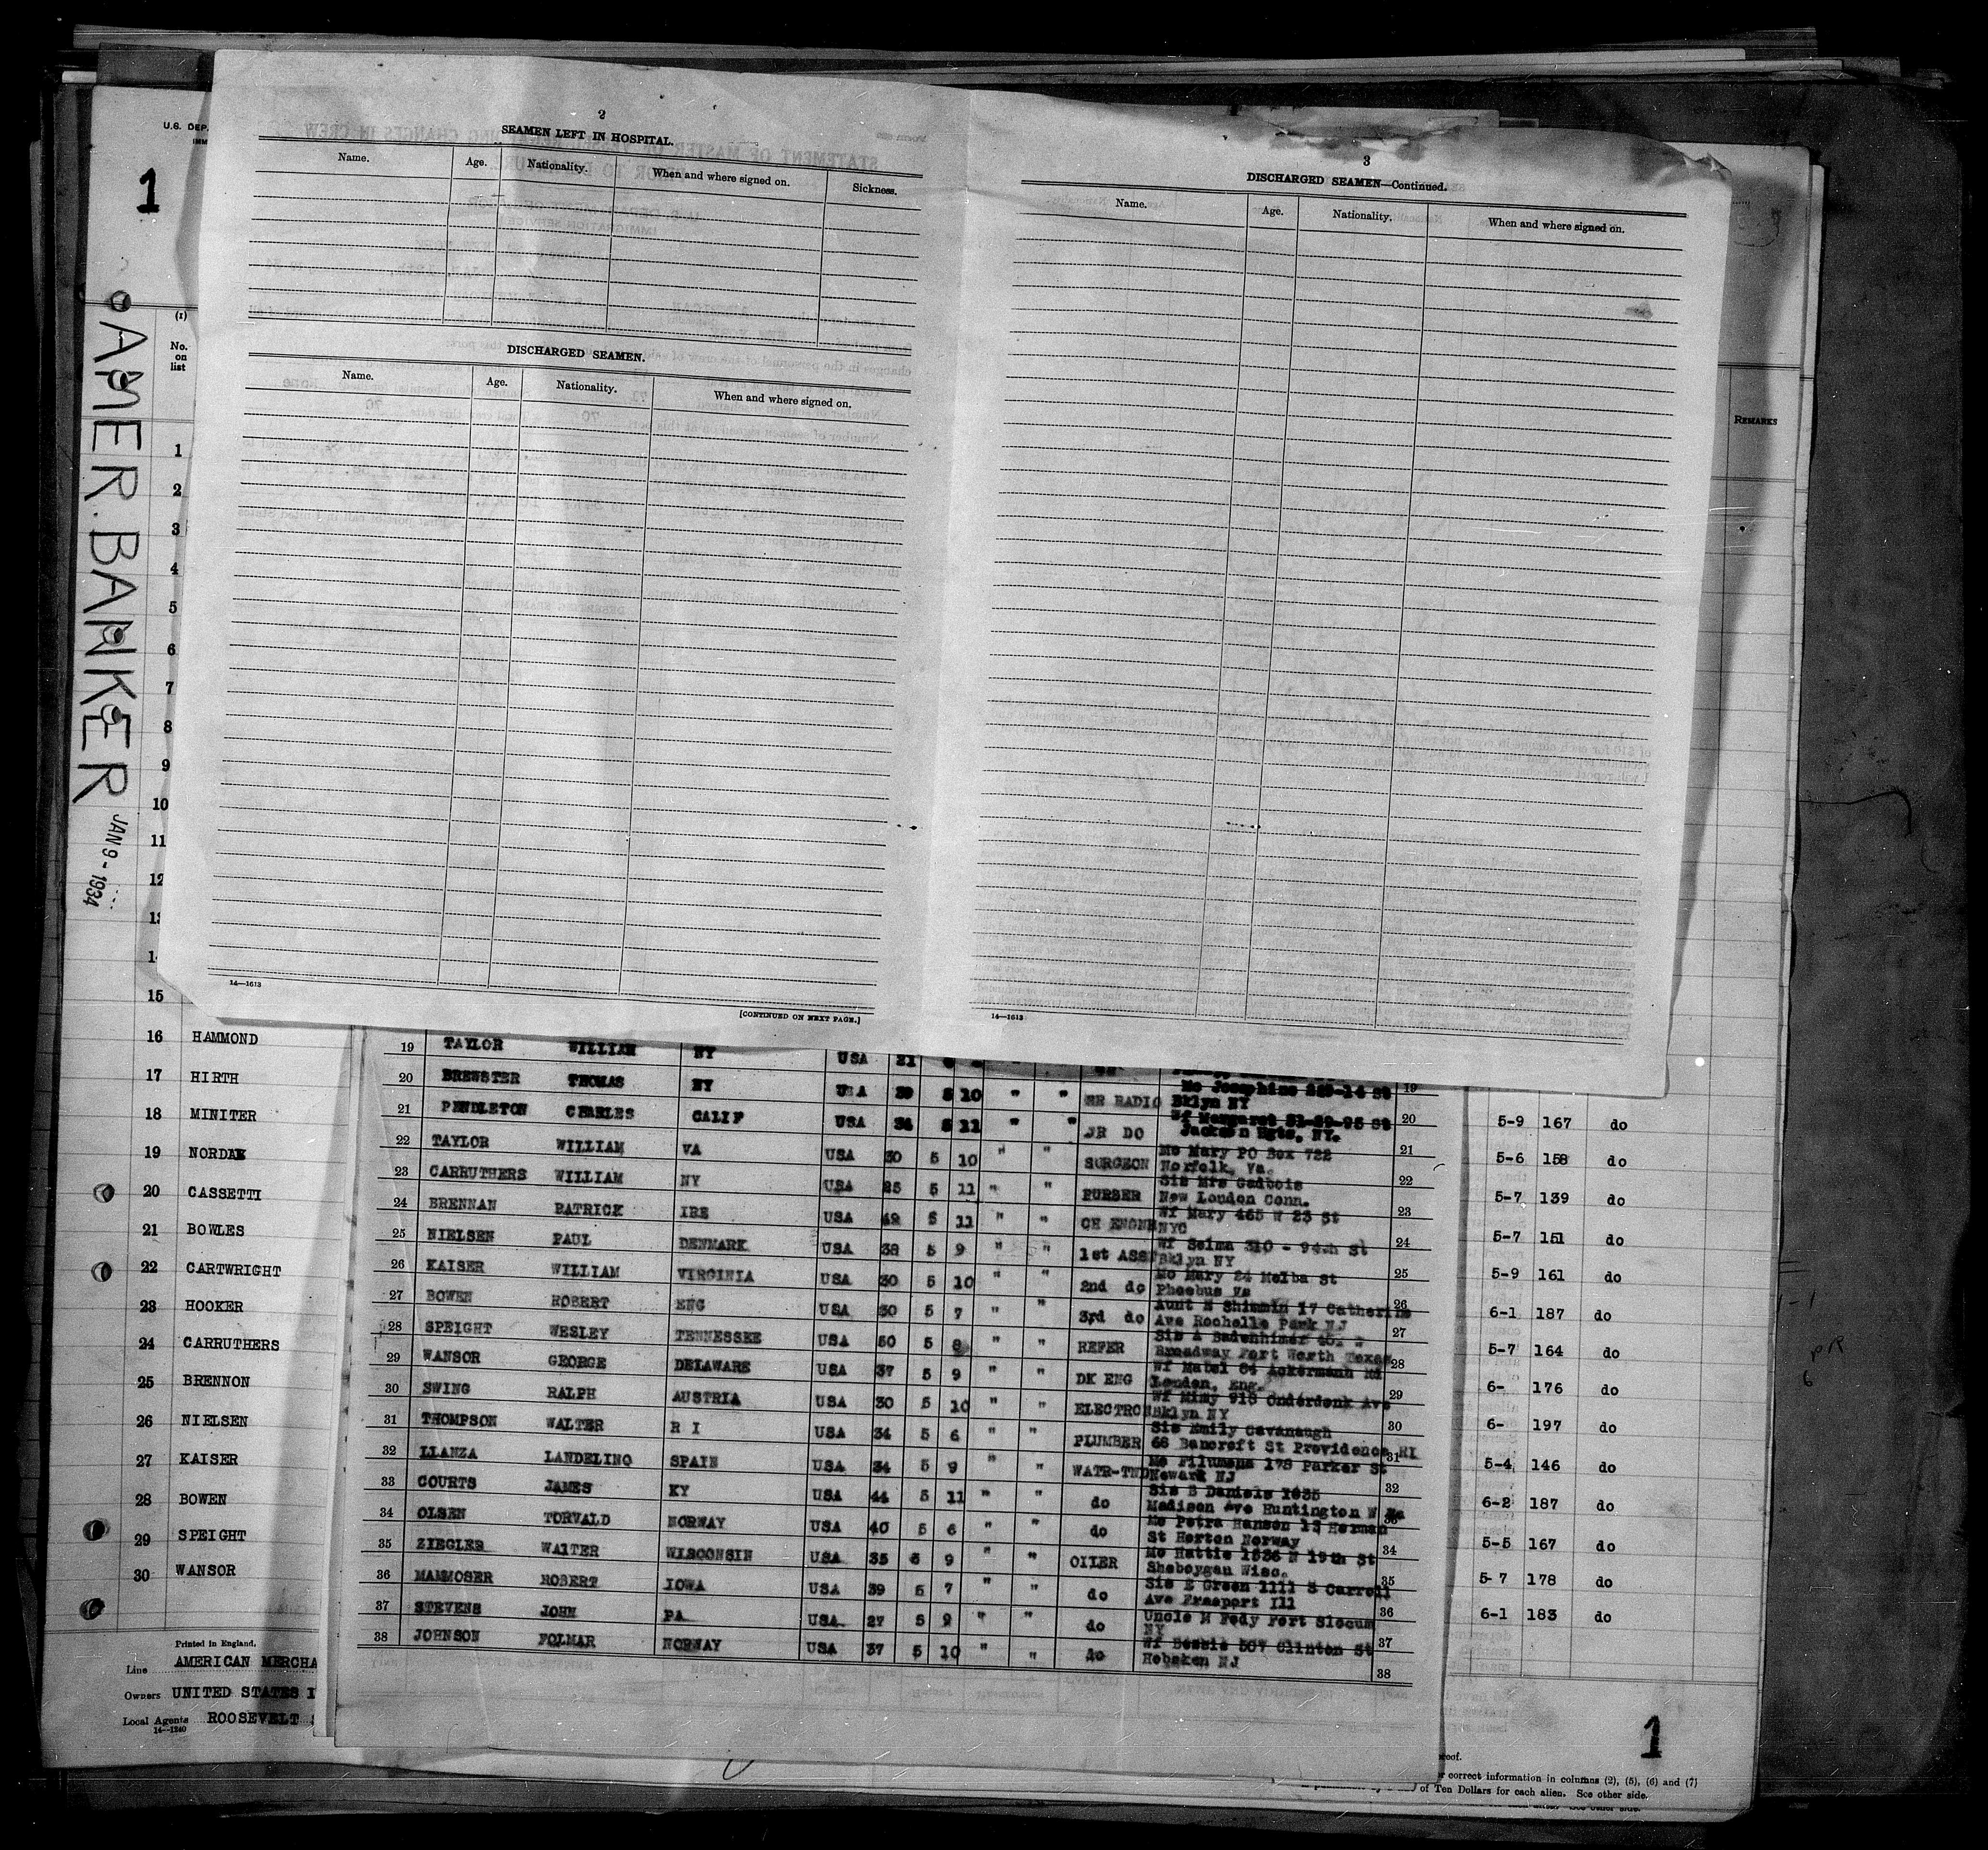 U.S. DEP.
IMM
1
AMER. BANKER
JAN 9 - 1934
(1)
No.
on
list
2
SEAMEN LEFT IN HOSPITAL.
Name. Age. Nationality. When and where signed on. Sickness.
DISCHARGED SEAMEN.
Name. Age. Nationality. When and where signed on.
14—1613
[CONTINUED ON NEXT PAGE.]
3
DISCHARGED SEAMEN—Continued.
Name. Age. Nationality. When and where signed on.
14—1613
REMARKS
1
2
3
4
5
6
7
8
9
10
11
12
15
16 HAMMOND
17 HIRTH
18 MINITER
19 NORDAK
20 CASSETTI
21 BOWLES
22 CARTWRIGHT
23 HOOKER
24 CARRUTHERS
25 BRENNON
26 NIELSEN
27 KAISER
28 BOWEN
29 SPEIGHT
30 WANSOR
Printed in England.
Line AMERICAN MERCHA
Owners UNITED STATES
Local Agents ROOSEVELT
14—1240
19 TAYLOR WILLIAM NY USA 21
20 BREWSTER THOMAS NY USA 5 10 " " SR RADIO Mo Josephine 14 St 19
Bklyn NY
21 PENDLETON CHARLES CALIF USA 34 5 11 " " JR DO Wf Margaret 95 St 20
Jackson Hgts, NY.
22 TAYLOR WILLIAM VA USA 30 5 10 " " SURGEON Mo Mary PO Box 722 21
Norfolk, Va.
23 CARRUTHERS WILLIAM NY USA 25 5 11 " " PURSER Sis Mrs Gadbois 22
New London Conn.
24 BRENNAN PATRICK IRE USA 42 5 11 " " CH ENGNR Wf Mary 465 W 23 St 23
NYC
25 NIELSEN PAUL DENMARK USA 38 5 9 " " 1st ASST Wf Selma 310 - 94th St 24
Bklyn NY
26 KAISER WILLIAM VIRGINIA USA 30 5 10 " " 2nd do Mo Mary 24 Melba St 25
Phoebus Va
27 BOWEN ROBERT ENG USA 30 5 7 " " 3rd do Aunt M Shimmin 17 Catherine 26
Ave Rochelle Park NJ
28 SPEIGHT WESLEY TENNESSEE USA 50 5 8 " " REFER Sis A Badenhimer 27
Broadway Fort Worth Texas
29 WANSOR GEORGE DELAWARE USA 37 5 9 " " DK ENG Wf Mabel 64 Ackermann Rd 28
London, Eng.
30 SWING RALPH AUSTRIA USA 30 5 10 " " ELECTRCN Wf Mimy 918 Onderdonk Ave 29
Bklyn NY
31 THOMPSON WALTER R I USA 34 5 6 " " PLUMBER Sis Emily Cavanaugh 30
66 Bancroft St Providence RI
32 LLANZA LANDELINO SPAIN USA 34 5 9 " " WATR-TND Mo Filumena 178 Parker St 31
Newark NJ
33 COURTS JAMES KY USA 44 5 11 " " do Sis B Daniels 1635 32
Madison Ave Huntington W Va
34 OLSEN TORVALD NORWAY USA 40 5 6 " " do Mo Petra Hansen 13 Herman 33
St Horten Norway
35 ZIEGLER WALTER WISCONSIN USA 35 5 9 " " OILER Mo Hattie 1836 N 19th St 34
Sheboygan Wisc.
36 MAMMOSER ROBERT IOWA USA 39 5 7 " " do Sis E Green 1111 S Carroll 35
Ave Freeport Ill
37 STEVENS JOHN PA USA 27 5 9 " " do Uncle M Fedy Fort Slocum 36
NY
38 JOHNSON FOLMAR NORWAY USA 37 5 10 " " do Wf Bessie 507 Clinton St 37
Hoboken NJ 38
5-9 167 do
5-6 158 do
5-7 139 do
5-7 151 do
5-9 161 do
6-1 187 do
5-7 164 do
6- 176 do
6- 197 do
5-4 146 do
6-2 187 do
5-5 167 do
5-7 178 do
6-1 183 do
1
correct information in columns (2), (5), (6) and (7)
of Ten Dollars for each alien. See other side.